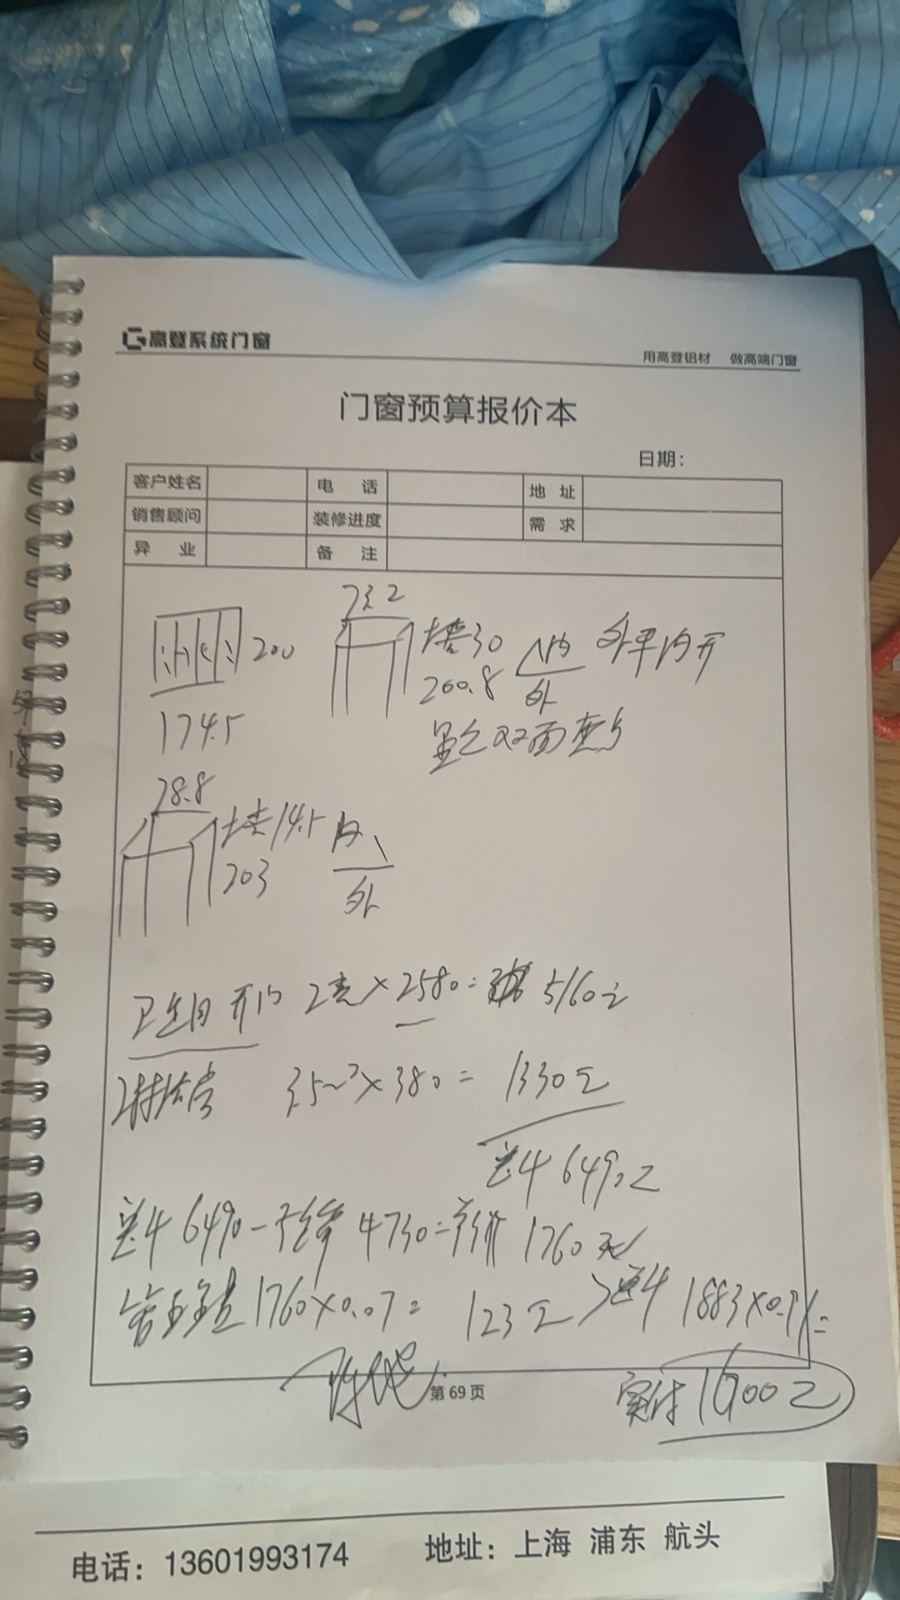 高登系统门窗
用高登铝材 做高端门窗
门窗预算报价本
日期：
客户姓名 电 话 地 址
销售顾问 装修进度 需 求
异 业 备 注
200
174.5
73.2
墙30
200.8
内
外
外平内开
双面
78.8
墙14.5
203
内
外
卫生间 开门 2套×2580= 5160元
3.5m²×380= 1330元
总4 6490元
总4 6490- 4730= 1760元
1760×0.07= 123元
1883×0.91=
实付
第 69 页
电话：13601993174
地址：上海 浦东 航头